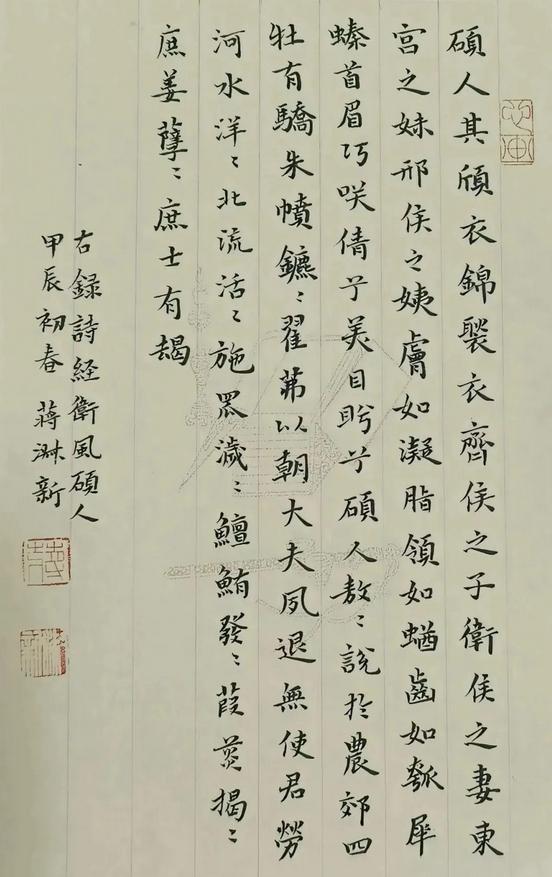 心画
碩人其頎衣錦褧衣齊侯之子衛侯之妻東
宮之妹邢侯之姨膚如凝脂領如蝤齒如瓠犀
螓首眉巧咲倩兮美目盻兮碩人敖〻說於農郊四
牡有驕朱幩鑣〻翟茀以朝大夫夙退無使君勞
河水洋〻北流活〻施罛濊〻鱣鮪發〻葭菼揭〻
庶姜孽〻庶士有朅
右録詩経衛風碩人
甲辰初春 蔣淋新